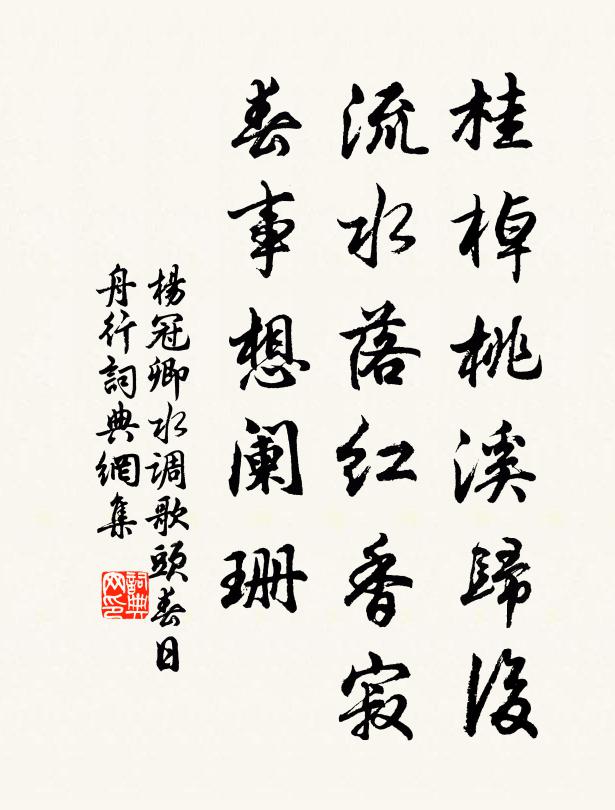 桂棹桃溪歸後
流水落紅香寂
春事想阑珊
楊冠卿水调歌頭春日
舟行詞典網集
詞典网印